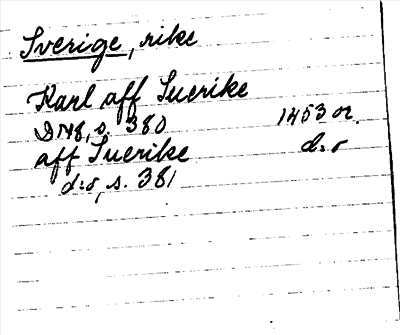 Sverige, rike
Karl aff Suerike
DN8, s. 380 1453 or.
aff Suerike d:o
d:o, s. 381